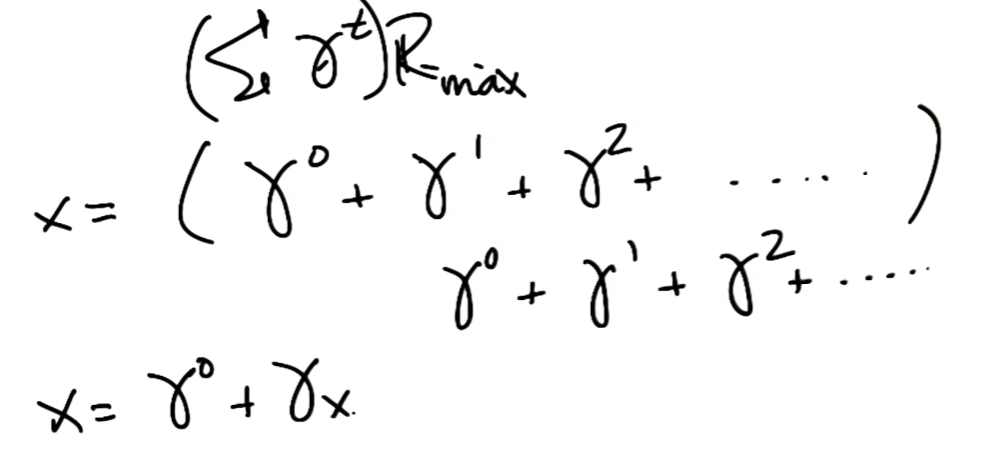 (Σ γ^t) R_max
x = (γ^0 + γ^1 + γ^2 + .....)
γ^0 + γ^1 + γ^2 + .....
x = γ^0 + γx.